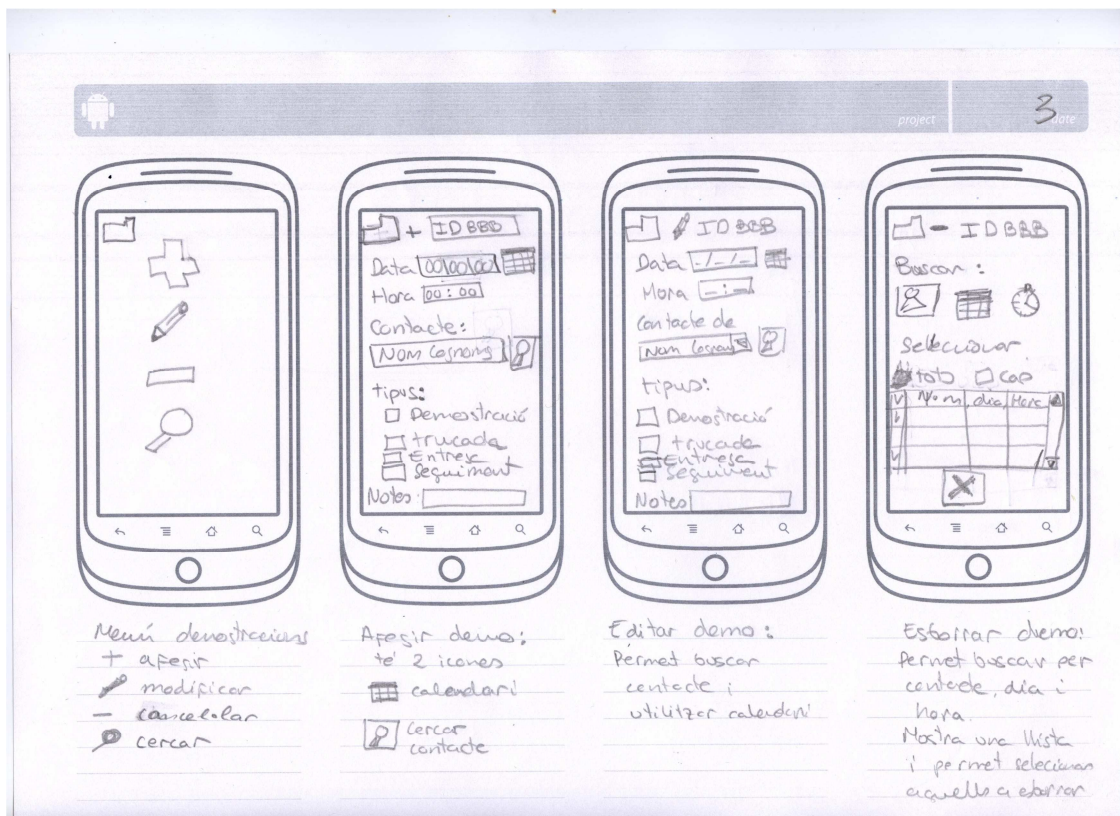 project
3
date
+ ID BBB
Data 00/00/00
Hora 00:00
Contacte:
Nom Cognoms
tipus:
Demostració
trucada
Entrega
Seguiment
Notes:
ID BBB
Data -/-/-
Hora -:-
Contacte de
Nom Cognom
tipus:
Demostració
trucada
Entrega
Seguiment
Notes
- ID BBB
Buscar:
Selecciónar
tots cap
V Nom dia Hora
X
Menú demostracions
+ afegir
modificar
- cancelolar
cercar
Afegir demo:
té 2 icones
calendari
cercar
contacte
Editar demo:
Permet buscar
contacte i
utilitzar calendari
Esborrar demo:
Permet buscar per
contacte, dia i
hora.
Mostra una llista
i permet seleccionar
aquells a esborrar